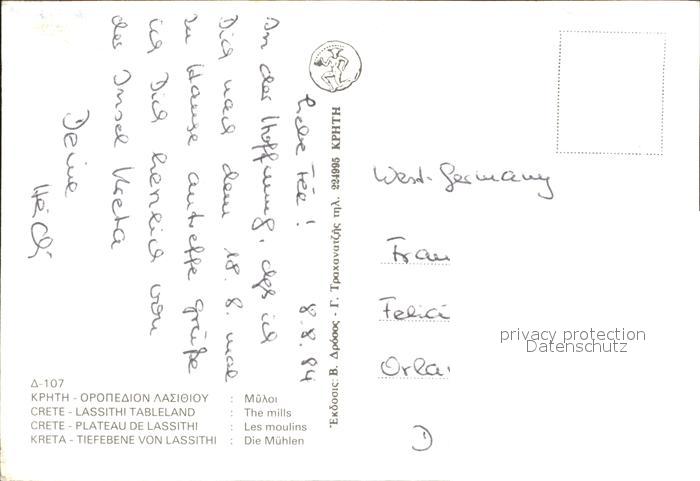 Liebe Fee! 8.8.84
In der Hoffnung, daß ich
Dich nach dem 18.8. mal
zu Hause antreffe grüße
ich Dich herzlich von
der Insel Kreta
Deine
Heidi
Έκδοσις: Β. Δρόσος - Γ. Τραχανατζής τηλ. 224995 ΚΡΗΤΗ
West-Germany
Frau
Felici
Orla
D
privacy protection
Datenschutz
Δ-107
ΚΡΗΤΗ - ΟΡΟΠΕΔΙΟΝ ΛΑΣΙΘΙΟΥ : Μῦλοι
CRETE - LASSITHI TABLELAND : The mills
CRETE - PLATEAU DE LASSITHI : Les moulins
KRETA - TIEFEBENE VON LASSITHI : Die Mühlen